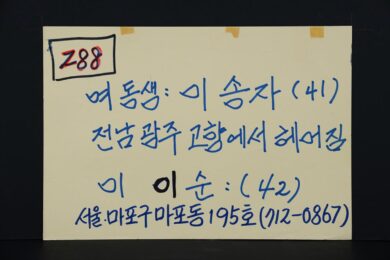 288
여동생: 이송자 (41)
전남광주 고향에서 헤어짐
이 이순: (42)
서울:마포구마포동195호(712-0867)